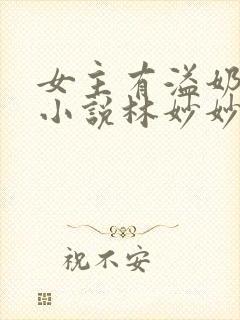 女主有溢奶
小说林妙妙
祝不安